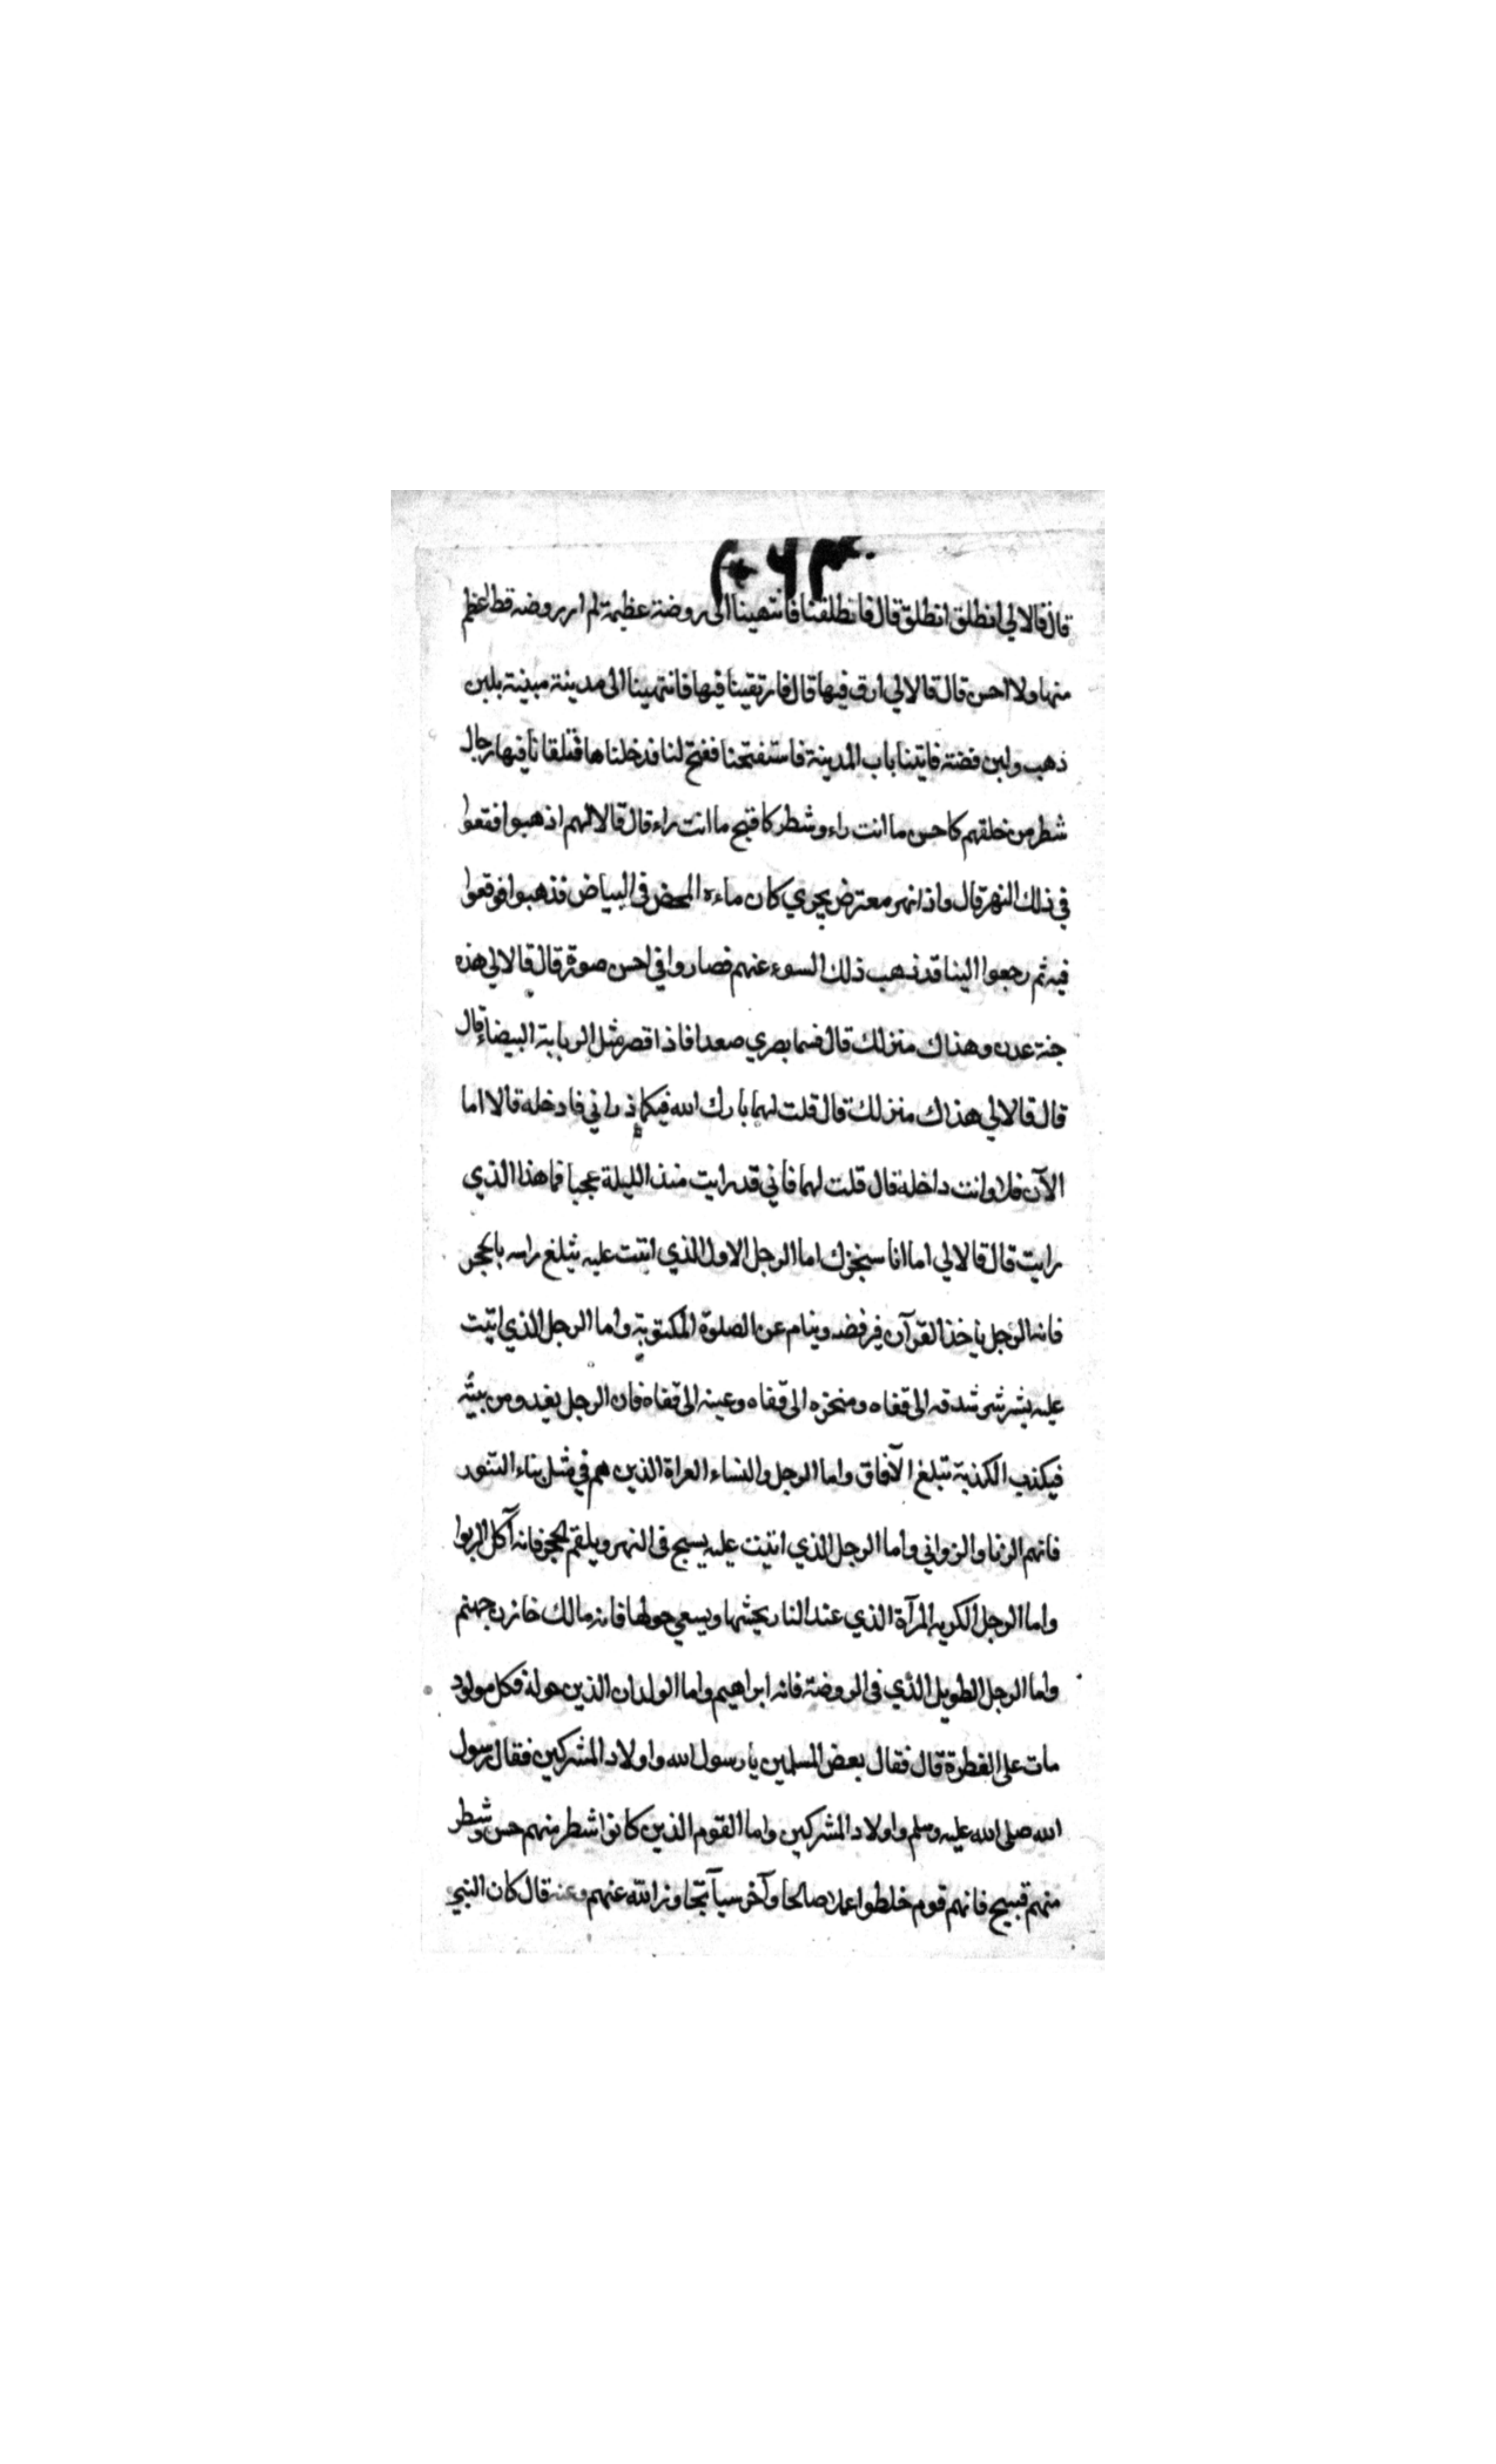 قال قالا لي انطلق انطلق قال فانطلقنا فانتهينا الى روضة عظيمة لم ار روضه قط اعظم
منها ولا احسن قال قالا لي ارق فيها قال فارتقينا فيها فانتهينا الى مدينة مبنية بلبن
ذهب ولبن فضة فاتينا باب المدينة فاستفتحنا ففتح لنا فدخلناها فتلقانا فيها رجال
شطر من خلقهم كاحسن ما انت راء وشطر كاقبح ما انت راء قال قالا لهم اذهبوا فقعوا
في ذلك النهر قال واذا نهر معترض يجري كان ماءه المحض في البياض فذهبوا فوقعوا
فيه ثم رجعوا الينا قد ذهب ذلك السوء عنهم فصاروا في احسن صورة قال قالا لي هذه
جنة عدن وهذاك منزلك قال فسما بصري صعدا فاذا قصر مثل الربابة البيضاء قال
قال قالا لي هذاك منزلك قال قلت لهما بارك الله فيكما ذراني فادخله قالا اما
الآن فلا وانت داخله قال قلت لهما فاني قد رايت منذ الليلة عجبا فما هذا الذي
رايت قال قالا لي اما انا سنخبرك اما الرجل الاول الذي اتيت عليه يثلغ راسه بالحجر
فانه الرجل ياخذ القرآن فيرفضه وينام عن الصلوة المكتوبة واما الرجل الذي اتيت
عليه يشرشر شدقه الى قفاه ومنخره الى قفاه وعينه الى قفاه فان الرجل يغدو من بيته
فيكذب الكذبة تبلغ الآفاق واما الرجل والنساء العراة الذين هم في مثل بناء التنور
فانهم الزنا والزواني واما الرجل الذي اتيت عليه يسبح في النهر ويلقم الحجر فانه آكل الربوا
واما الرجل الكريه المرآة الذي عند النار يحشها ويسعي حولها فانه مالك خازن جهنم
واما الرجل الطويل الذي في الروضة فانه ابراهيم واما الولدان الذين حوله فكل مولود
مات على الفطرة قال فقال بعض المسلمين يا رسول الله واولاد المشركين فقال رسول
الله صلى الله عليه وسلم واولاد المشركين واما القوم الذين كانوا شطر منهم حسن وشطر
منهم قبيح فانهم قوم خلطوا عملا صالحا وآخر سيآ تجاوز الله عنهم وعنه قال كان النبي